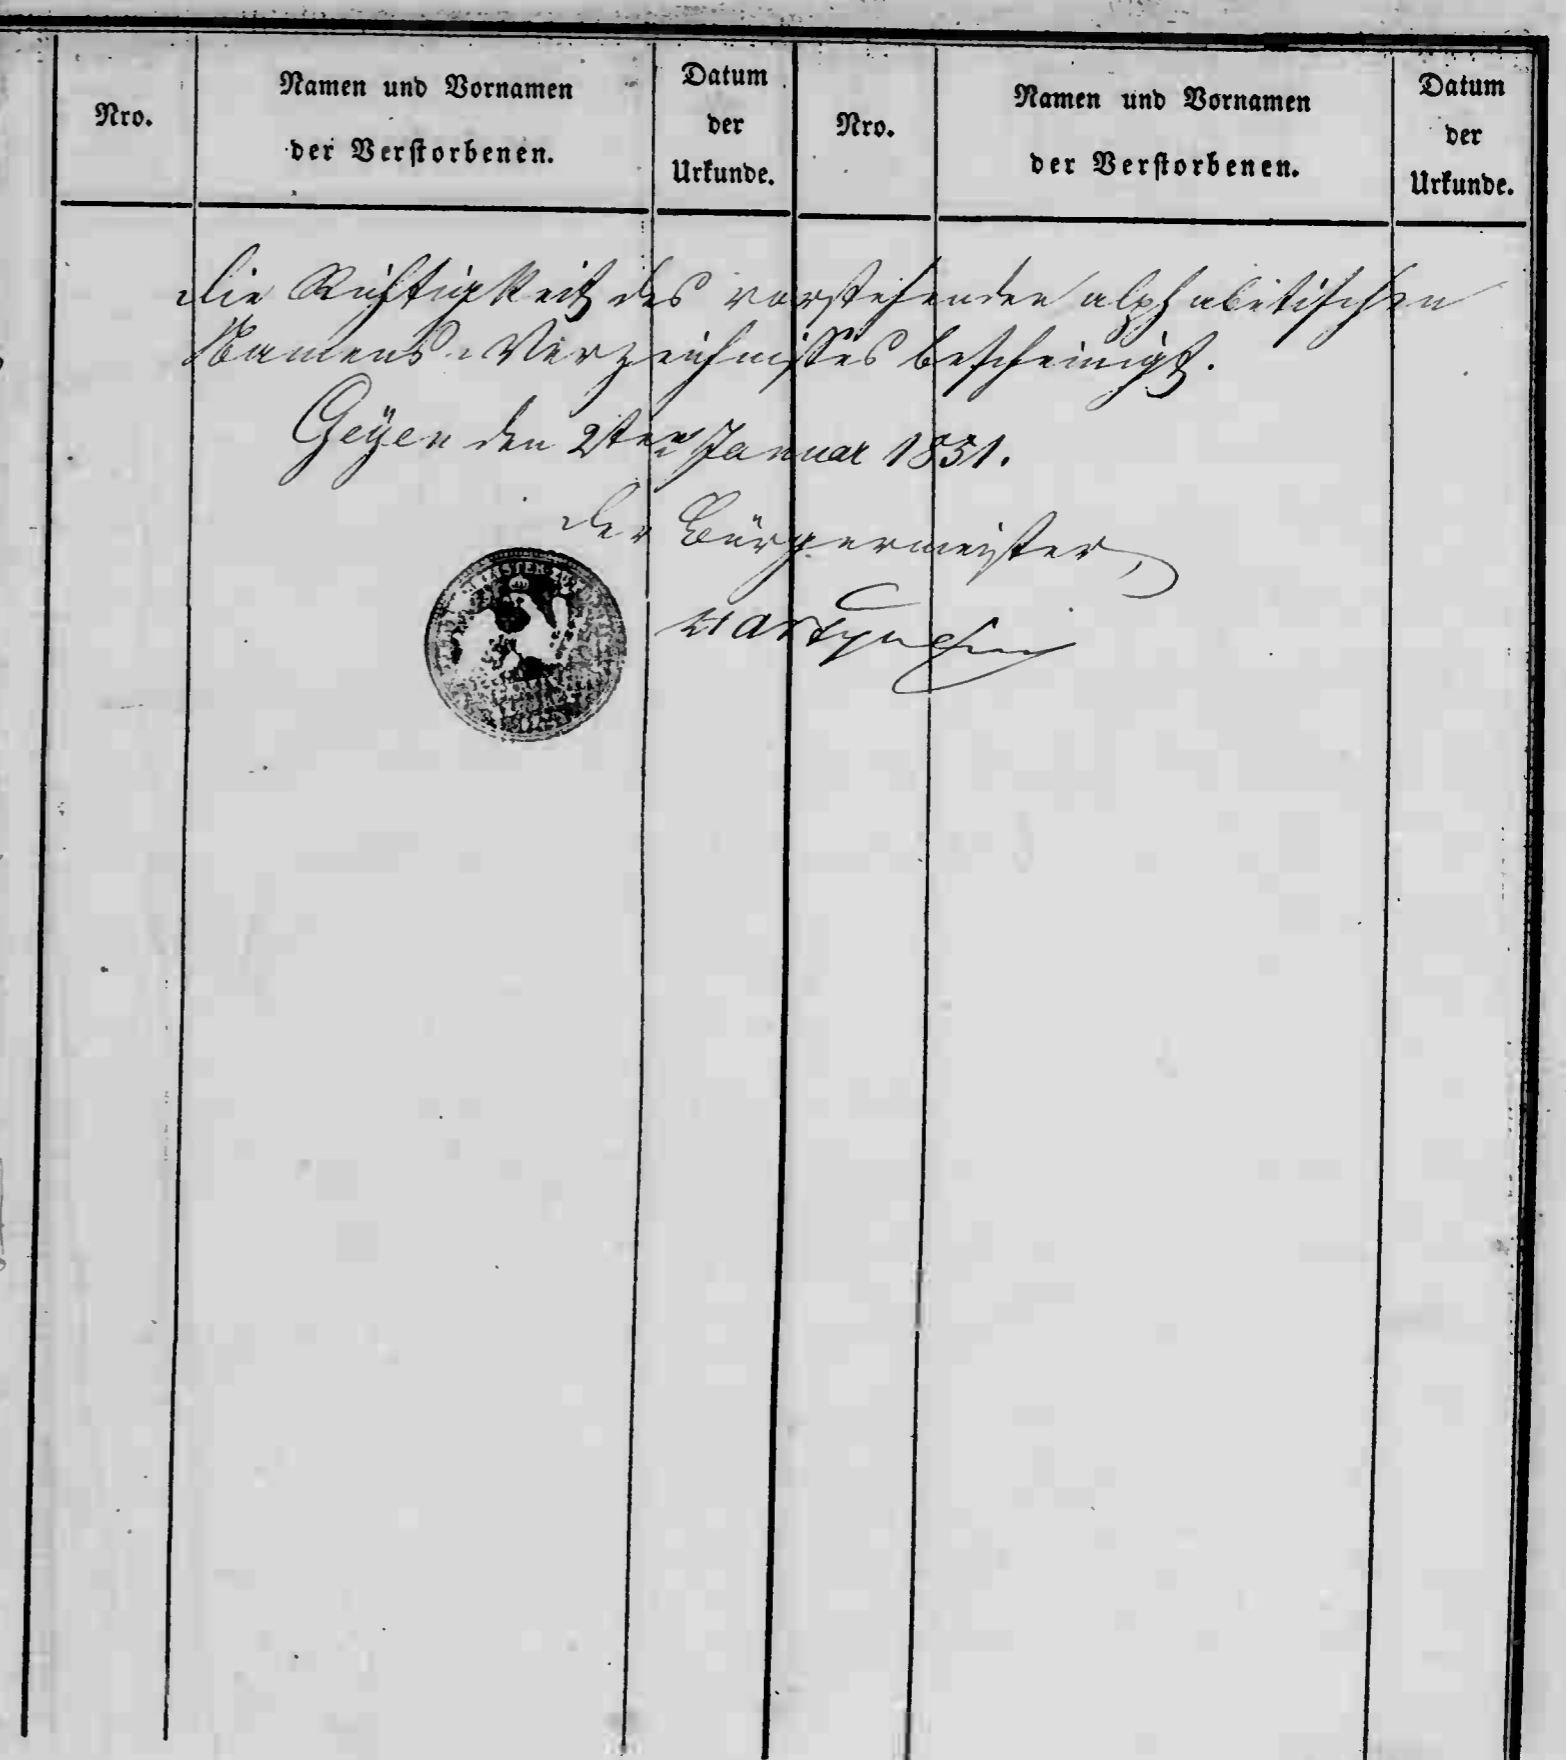 Nro.
Namen und Vornamen
der Verstorbenen.
Datum
der
Urkunde.
Nro.
Namen und Vornamen
der Verstorbenen.
Datum
der
Urkunde.
Die Richtigkeit des vorstehenden alphabetischen
Namens-Verzeichnisses bescheinigt.
Geÿen den 2ten Januar 1851.
Der Bürgermeister,